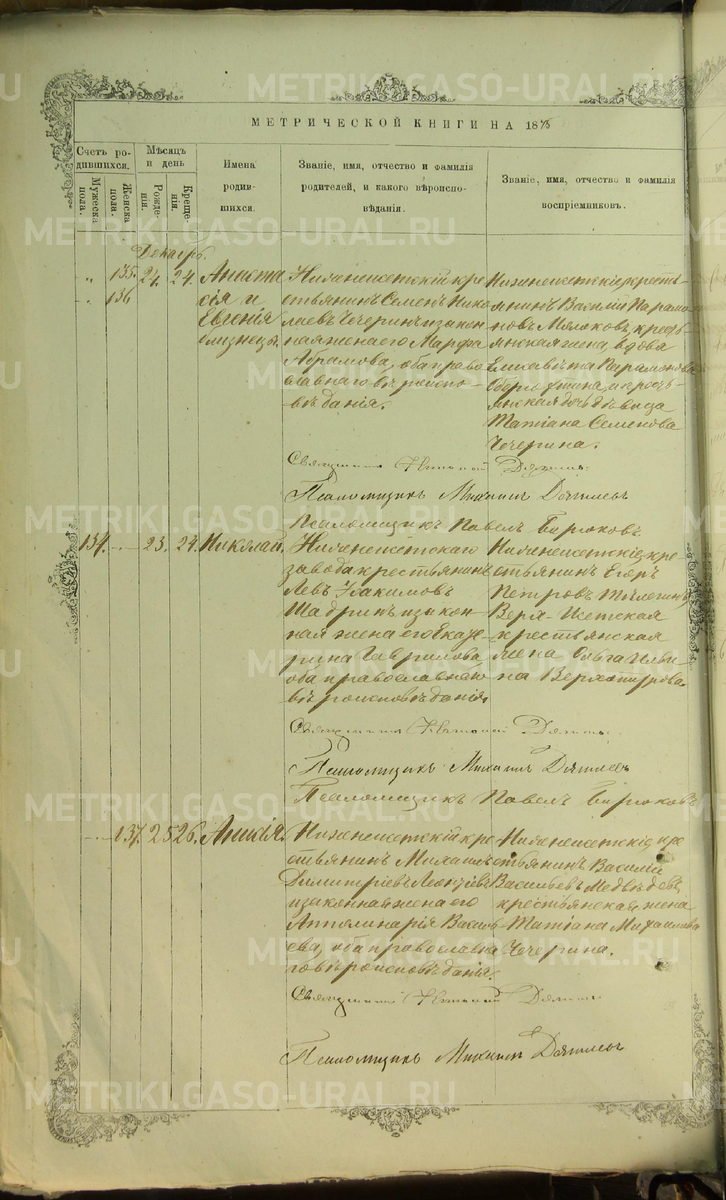 МЕТРИЧЕСКОЙ КНИГИ НА 18
Счетъ ро-
дившихся.
Мужеска
пола.
Женска
пола.
Мѣсяцъ
и день
Рожде-
нія.
Креще-
нія.
Имена
родив-
шихся.
Званіе, имя, отчество и фамилія
родителей, и какого вѣроиспо-
вѣданія.
Званіе, имя, отчество и фамилія
воспріемниковъ.
Декабрь.
135.
136
24.
24.
Анаста
сія и
Евгенія
близнецы.
Нижнеисетскій кре
стьянинъ Семенъ Нико
лаевъ Чечеринъ и закон
ная жена его Марфа
Абрамова, оба право
славнаго вѣроиспо-
вѣданія.
Нижнеисетскіе кресть
янинъ Василій Парамо
новъ, кресть
янская жена вдова
Елисавета Парамонова
и кресть
янская дочь дѣвица
Татіана Семенова
Чечерина.
Священникъ
Псаломщикъ Михаилъ
Псаломщикъ Павелъ Бирюковъ
134.
23.
24.
Николай.
Нижнеисетскаго
завода крестьянинъ
Левъ Іоакимовъ
Шадринъ и закон
ная жена его Екате
рина Гаврилова
оба православнаго
вѣроисповѣданія.
Нижнеисетскіе кре
стьянинъ Егоръ
Петровъ
Верх-Исетская
крестьянская
жена Ольга
Священникъ
Псаломщикъ Михаилъ
Псаломщикъ Павелъ Бирюковъ
137.
25
26.
Анисія.
Нижнеисетскій кре
стьянинъ Михаилъ
Димитріевъ Леонтьевъ
и законная жена его
Апполинарія Василь
ева, оба православна
го вѣроисповѣданія.
Нижнеисетскіе кре
стьянинъ Василій
Васильевъ Медвѣдевъ
крестьянская жена
Татіана Михаилова
Чечерина.
Священникъ
Псаломщикъ Михаилъ
METRIKI.GASO-URAL.RU